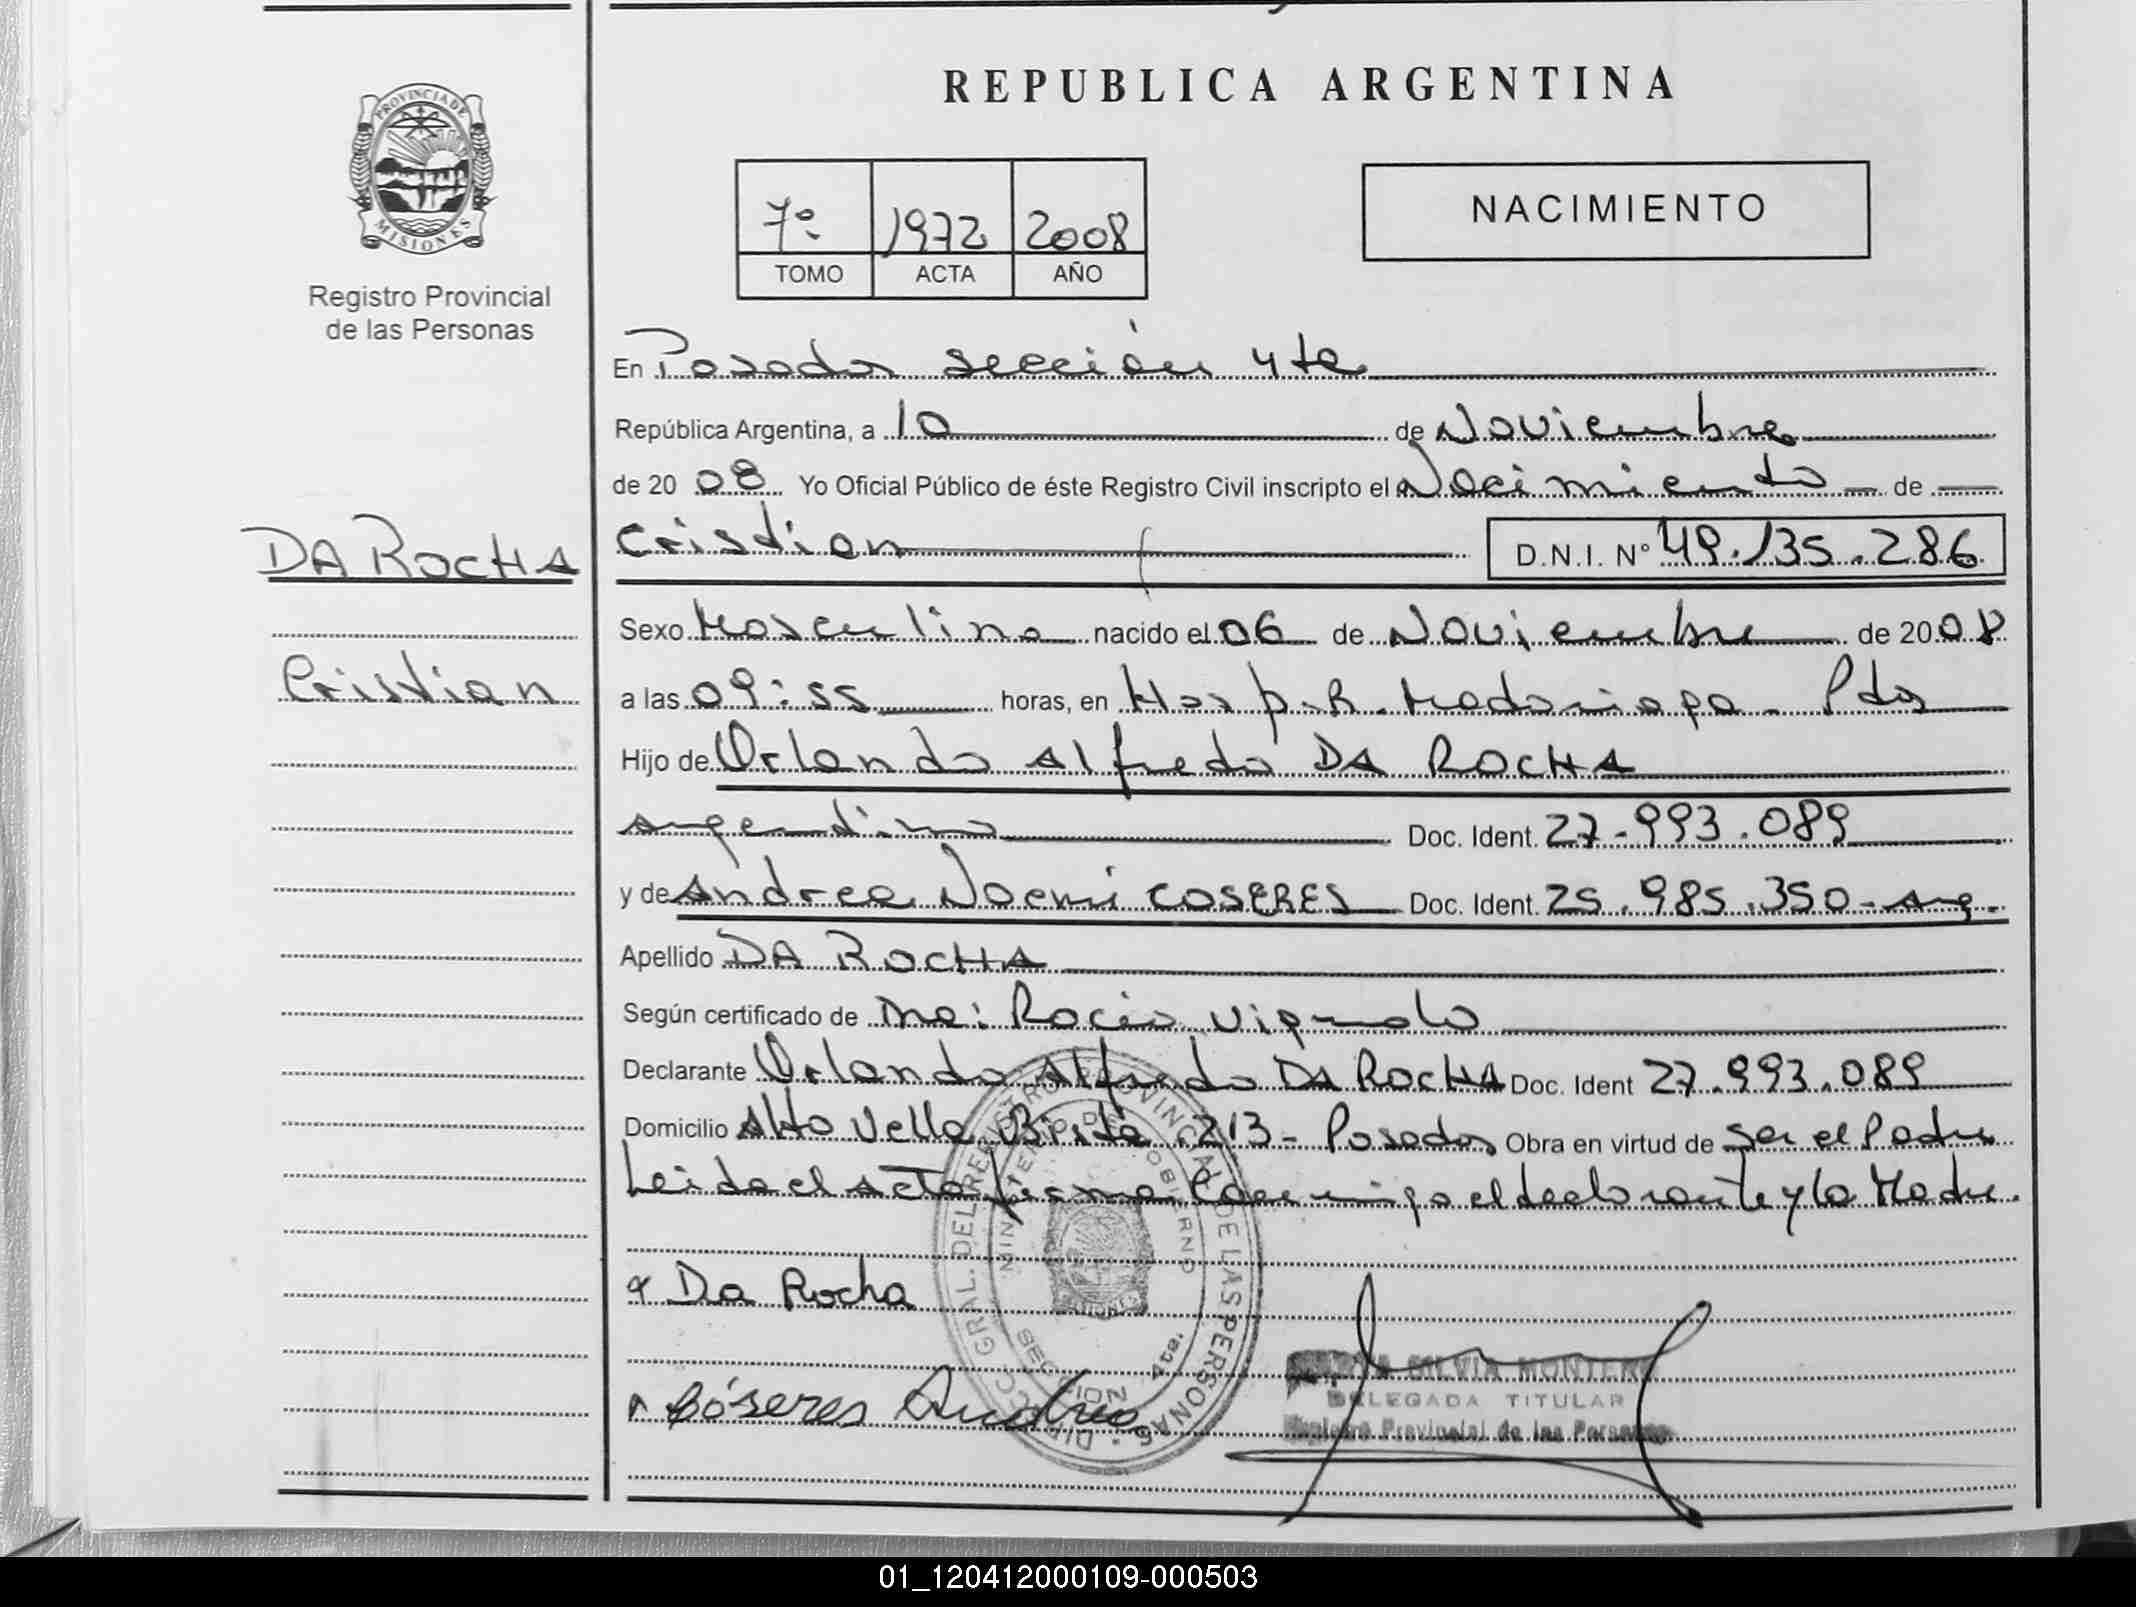 REPUBLICA ARGENTINA
PROVINCIA DE
MISIONES
Registro Provincial
de las Personas
7º 1972 2008
TOMO ACTA AÑO
NACIMIENTO
En Posadas sección 4ta
República Argentina, a 10 de Noviembre
de 2008 Yo Oficial Público de éste Registro Civil inscripto el Nacimiento de
DA ROCHA
Cristian
Cristian D.N.I. Nº 49.135.286
Sexo Masculino nacido el 06 de Noviembre de 2008
a las 09:55 horas, en Hosp. R. Madariaga - Pdas
Hijo de Orlando Alfredo DA ROCHA
argentino Doc. Ident. 27.993.089
y de Andrea Noemi COSERES Doc. Ident. 25.985.350 - Arg.
Apellido DA ROCHA
Según certificado de Dra: Rocio
Declarante Orlando Alfredo DA ROCHA Doc. Ident 27.993.089
Domicilio Alto Bella Vista 213 - Posadas Obra en virtud de ser el Padre
Leida el acta firma conmigo el declarante y la Madre.
Da Rocha
Cóseres Andrea
DIRECC. GRAL. DEL REGISTRO PROVINCIAL DE LAS PERSONAS
MINISTERIO DE GOBIERNO
SECCION 4ta.
SILVIA MONTERO
DELEGADA TITULAR
Registro Provincial de las Personas
01_120412000109-000503